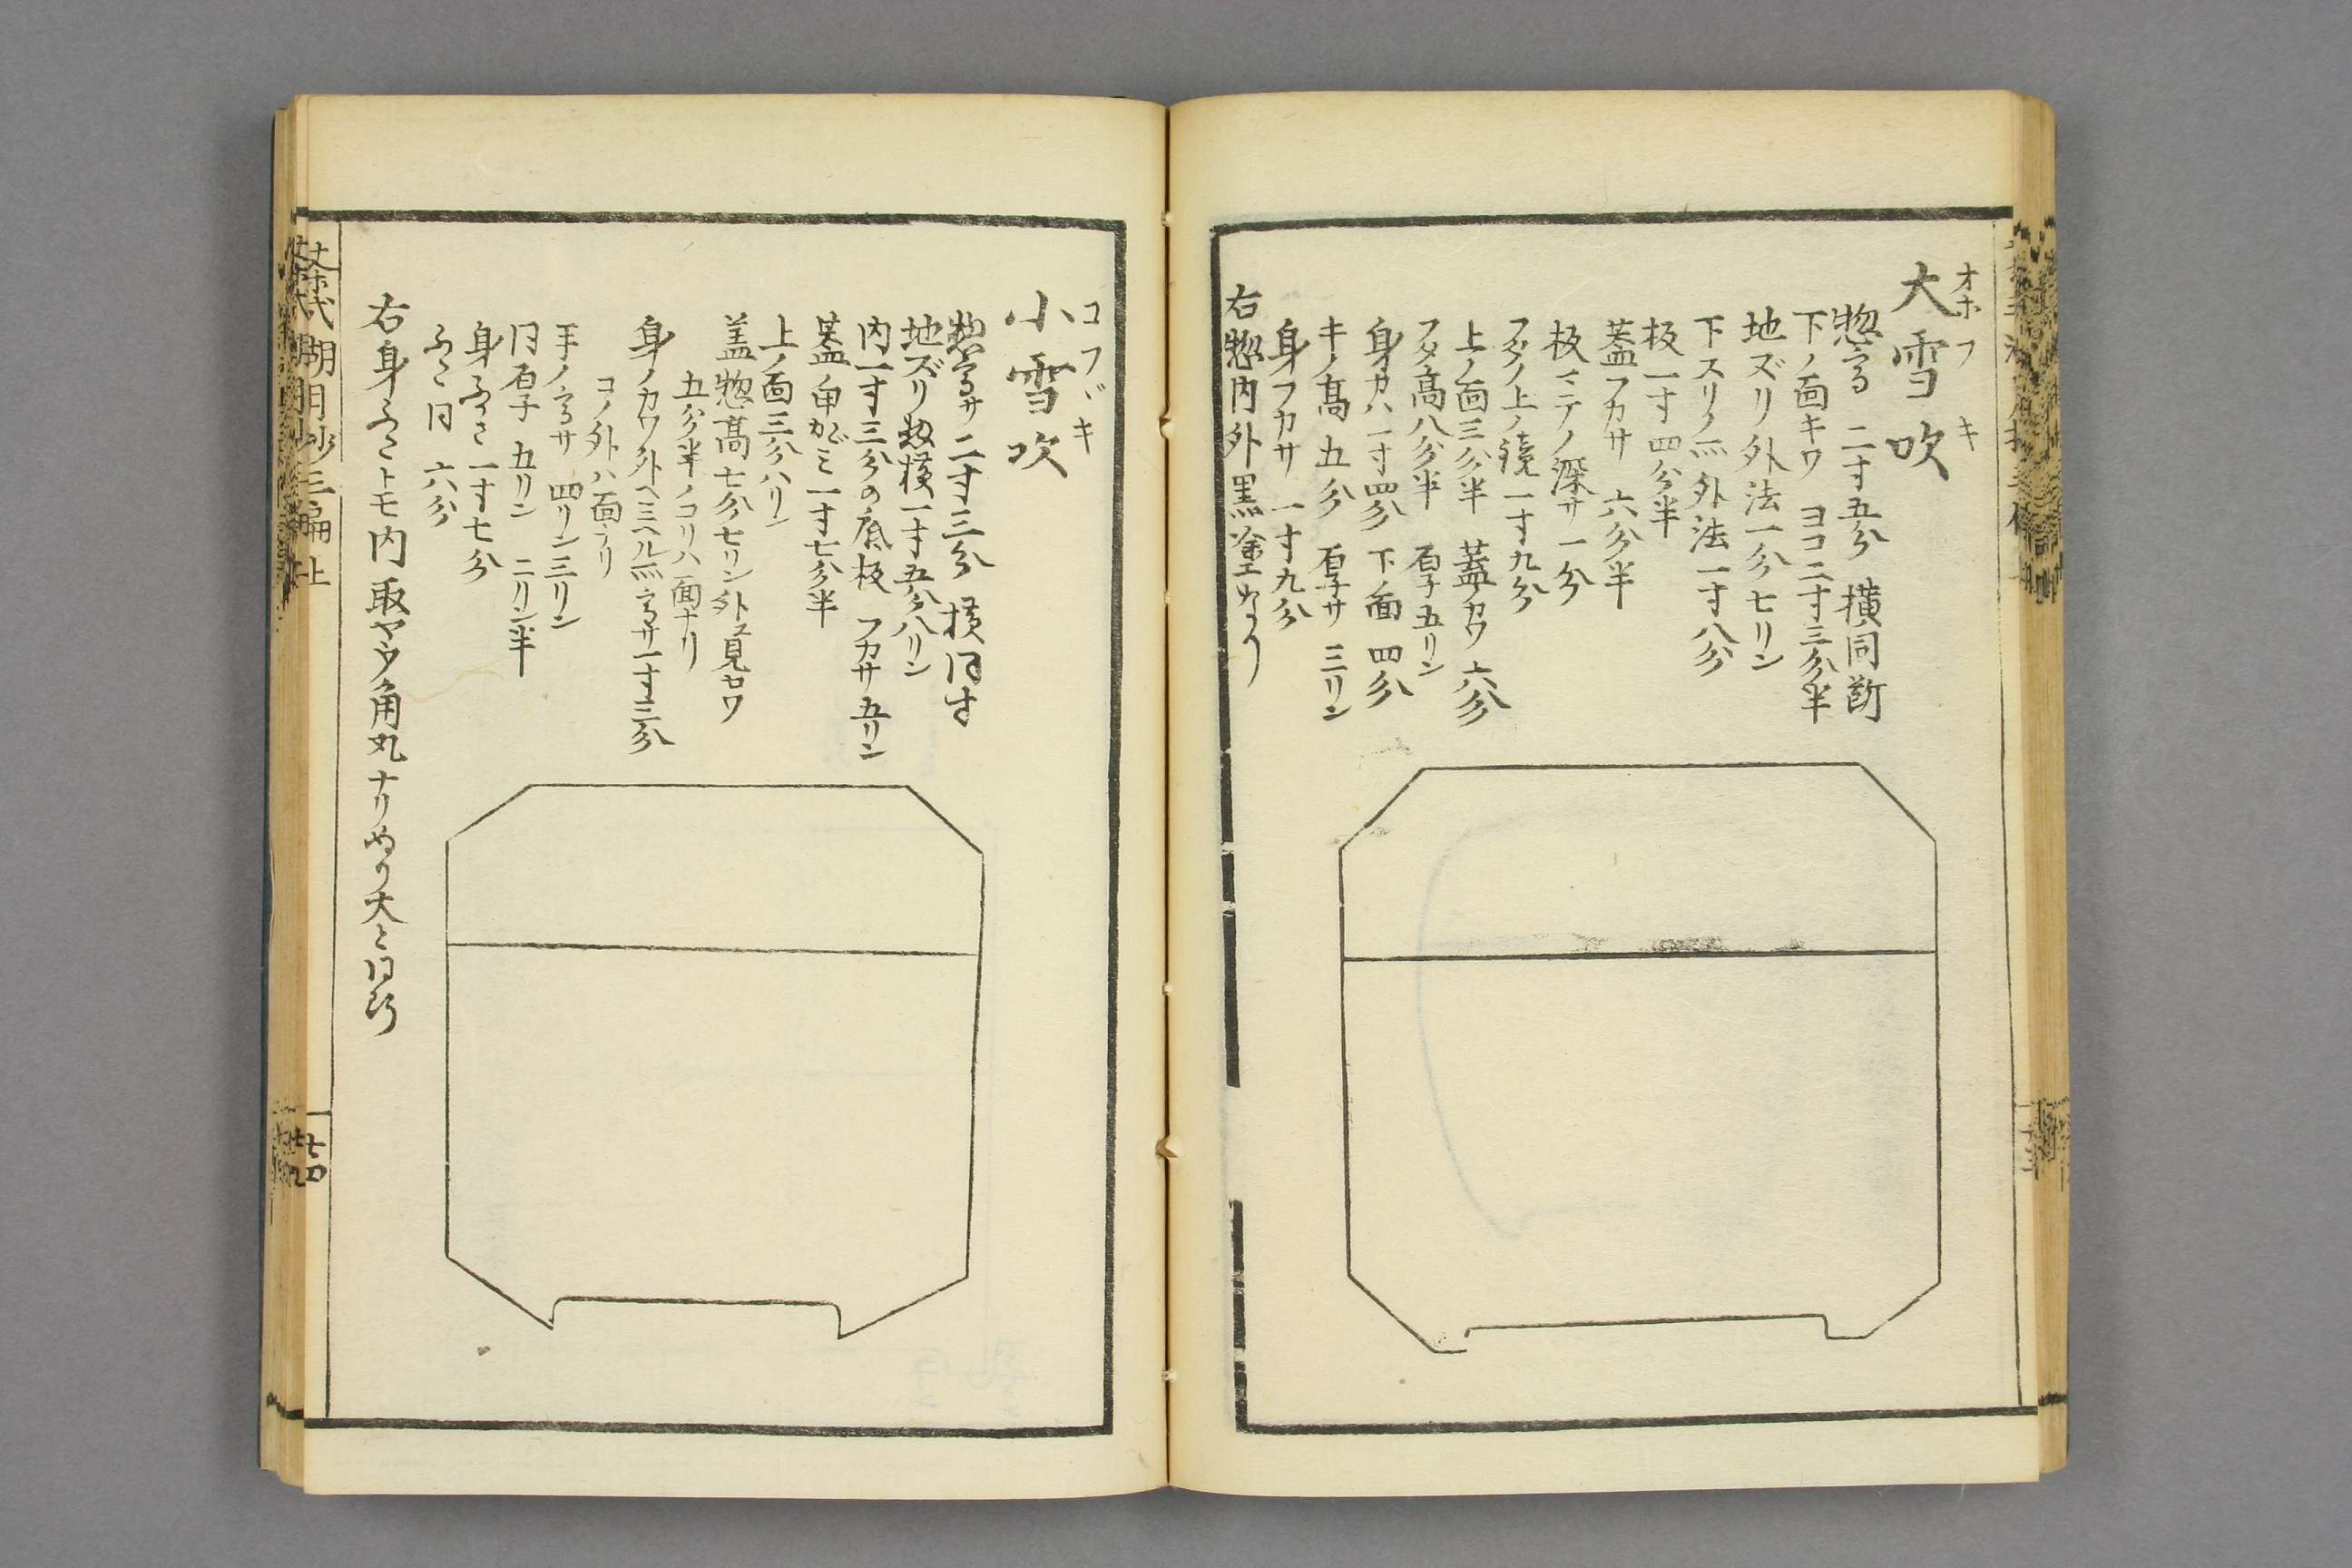 大雪吹
オホフキ
惣高 二寸五分 横同断
下ノ面キワ ヨコ二寸三分半
地ズリ外法一分七リン
下スリノ 外法一寸八分
板一寸四分半
蓋フカサ 六分半
板ミテノ深サ 一分
フタノ上ノ鏡一寸九分
上ノ面三分半 蓋カワ 六分
フタ高八分半 厚五リン
身カハ一寸四分 下ノ面 四分
キノ高 五分 厚サ 三リン
身フカサ 一寸九分
右惣内外黒塗なり
小雪吹
コフヾキ
惣高サ二寸三分 横同寸
地ズリ 横一寸五分八リン
内一寸三分の底板 フカサ 五リン
蓋ノ甲カゞミ一寸七分半
上ノ面三分八リン
蓋惣高七分七リン外ヱ見ヱワ
五分半ノコリハ面ナリ
身ノカワ外ヘミヘル 高サ一寸三分
コノ外ハ面ナリ
キノ高サ 四リン三リン
同厚 五リン 二リン半
身ふかさ一寸七分
ふた同 六分
右身ふたトモ内取ヤウ角丸ナリぬり大と同断
茶式湖月抄三編上
廿四